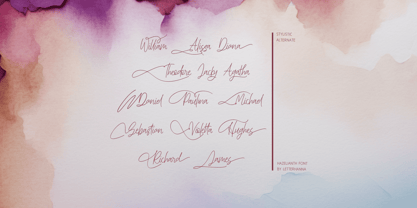 William Alissa Diana
Theodore Jacky Agatha
Daniel Paulina Michael
Sebastian Violetta Hughes
Richard James
STYLISTIC
ALTERNATE
FONT
BY LETTERHANNA